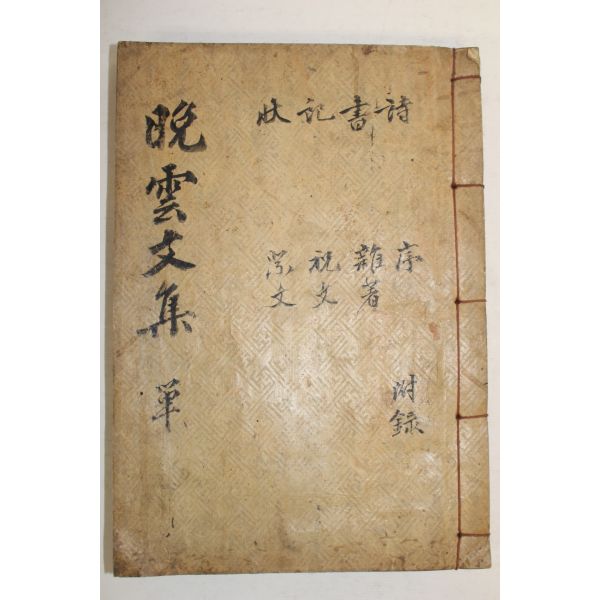 晚雲文集 單
詩 書 記 狀
序 雜著 祝文 祭文
附錄